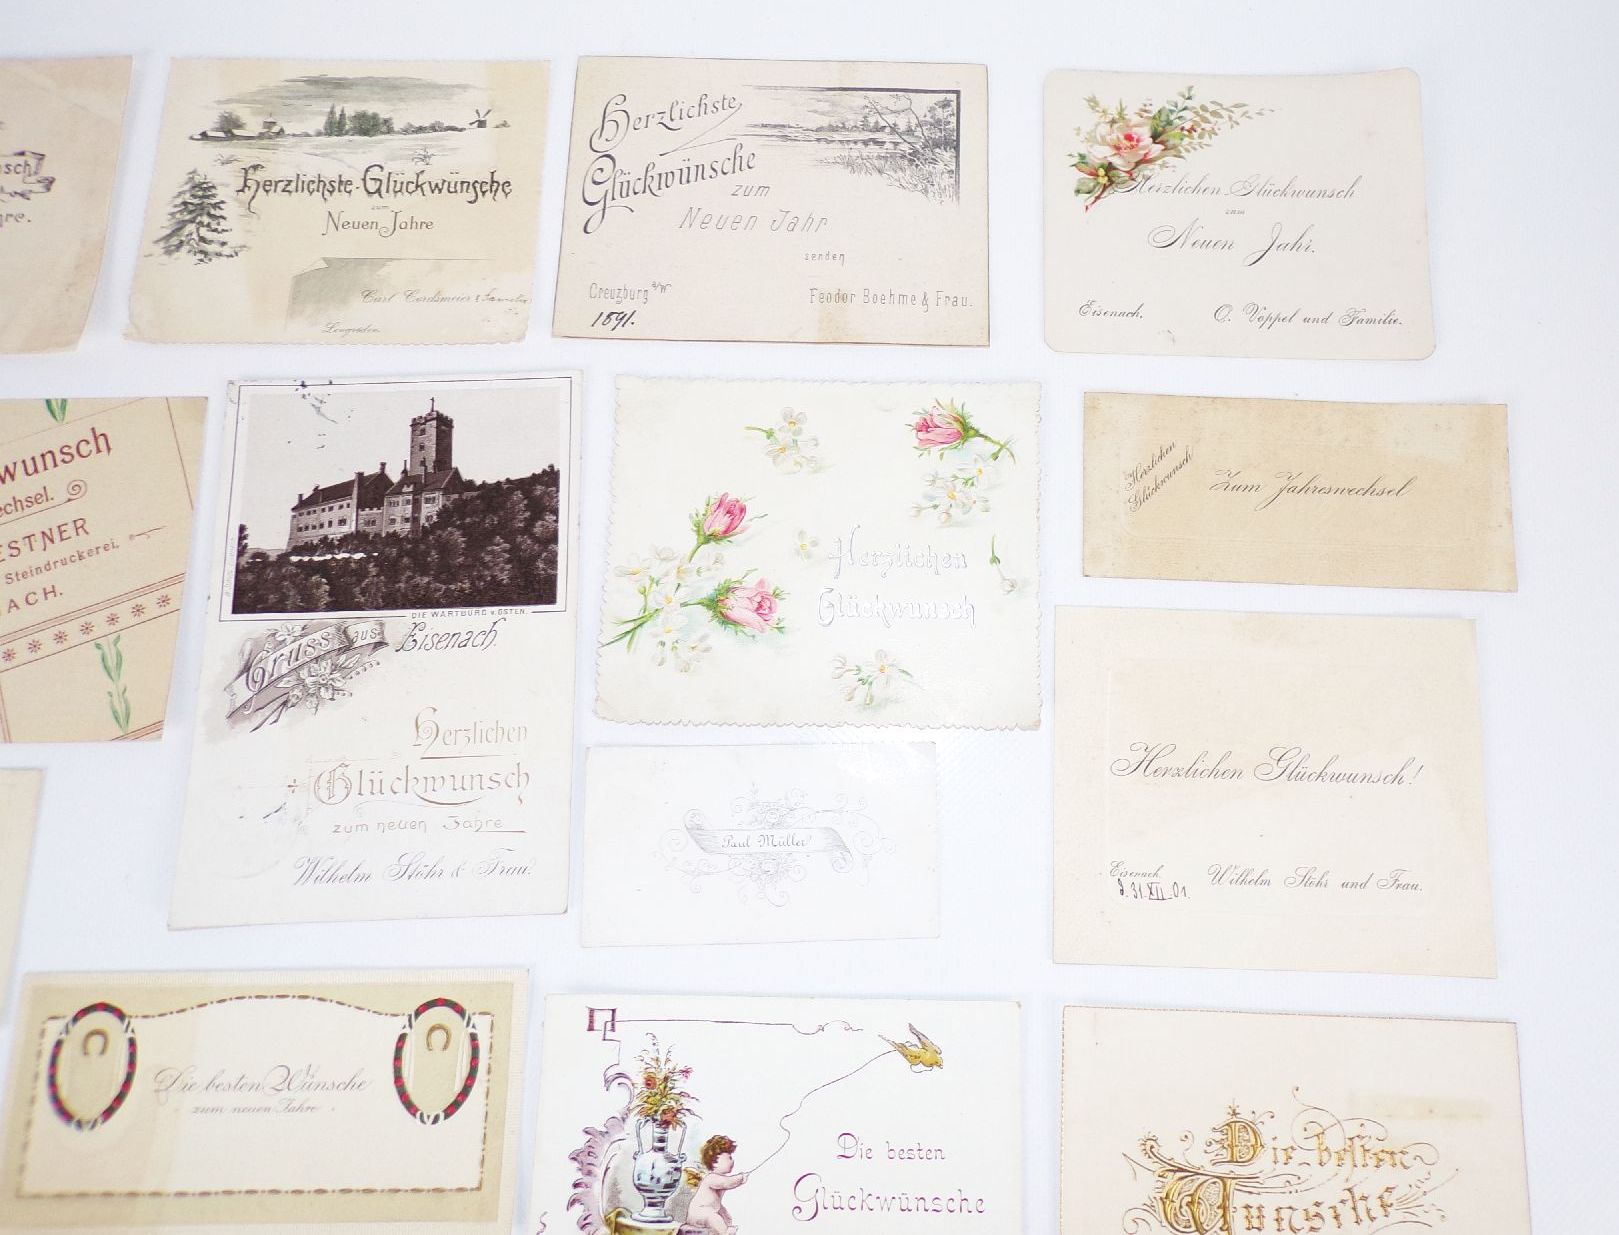 Herzlichste Glückwünsche
zum
Neuen Jahre
Carl Cordsmeier &
Herzlichste
Glückwünsche
zum
Neuen Jahr
senden
Creuzburg a/W
Feodor Boehme & Frau.
1891.
Herzlichen Glückwunsch
zum
Neuen Jahr.
Eisenach.
O. Voppel und Familie.
wunsch
echsel.
ESTNER
Steindruckerei,
ACH.
DIE WARTBURG v. OSTEN.
Gruss aus Eisenach.
Herzlichen
Glückwunsch
zum neuen Jahre
Wilhelm Stöhr & Frau.
Herzlichen
Glückwunsch
Herzlichen
Glückwunsch
Zum Jahreswechsel
Paul Müller
Herzlichen Glückwunsch!
Eisenach.
Wilhelm Stöhr und Frau.
d. 31.XII.01.
Die besten Wünsche
zum neuen Jahre
Die besten
Glückwünsche
Die besten
Wünsche